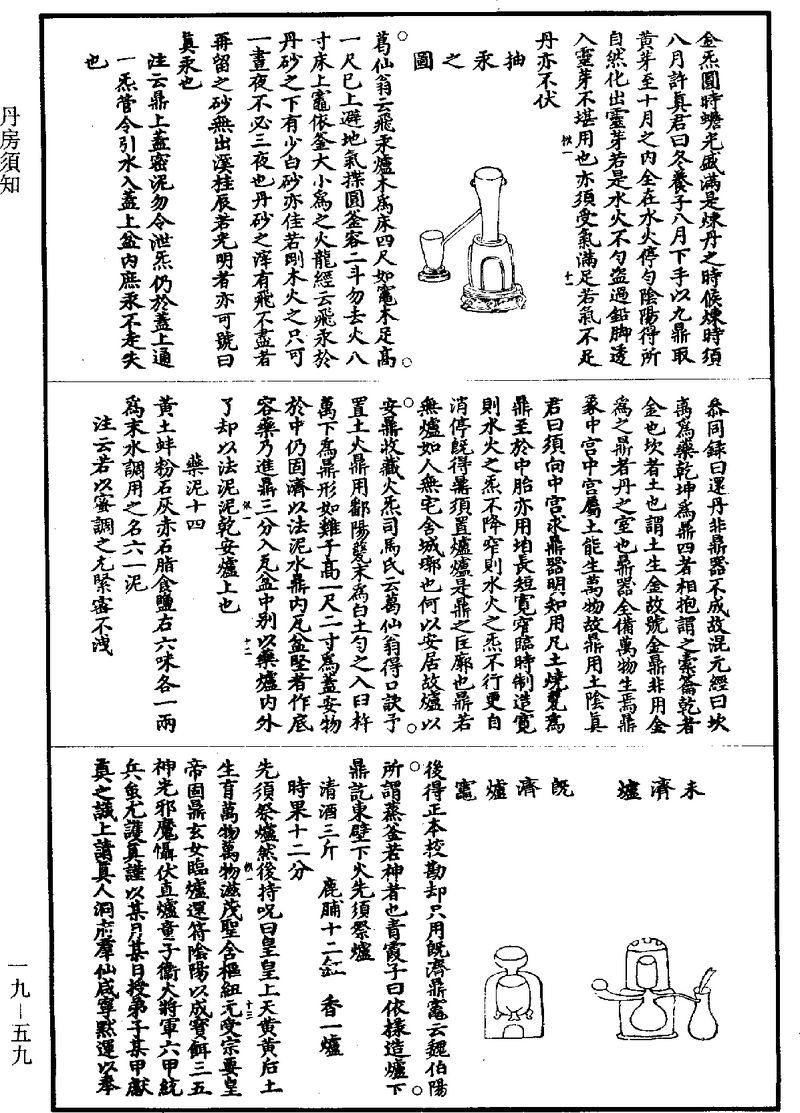 丹房須知
金炁圓時蟾光盛滿是煉丹之時候煉時須
八月許真君曰冬養子八月下手以九鼎取
黃芽至十月之內全在水火停勻陰陽得所
自然化出靈芽若是水火不勻盜過鉛脚透
入靈芽不堪用也亦須受氣滿足若氣不足
丹亦不伏
抽汞之圖
葛仙翁云飛汞爐木為床四尺如竈木足高
一尺已上避地氣揲圓釜容二斗勿去火八
寸床上竈依釜大小為之火龍經云飛汞於
丹砂之下有少白砂亦佳若剛木火之只可
一晝夜不必三夜也丹砂之滓有飛不盡者
再留之砂無出溪桂辰若光明者亦可號曰
真汞也
注云鼎上蓋密泥勿令泄炁仍於蓋上通
一炁管令引水入蓋上盆內庶汞不走失
也
參同錄曰還丹非鼎器不成故混元經曰坎
離為藥乾坤為鼎四者相抱謂之橐籥乾者
金也坎者土也謂土生金故號金鼎非用金
為之鼎者丹之室也鼎器全備萬物生焉鼎
象中宮中宮屬土能生萬物故鼎用土陰真
君曰須向中宮求鼎器明知用凡土燒甖為
鼎至於中胎亦用坩長短寬窄臨時制造寬
則水火之炁不降窄則水火之炁不行更自
消停既得鼎須置爐爐是鼎之匡廓也鼎若
無爐如人無宅舍城郭也何以安居故爐以
安鼎收藏火炁司馬氏云葛仙翁得口訣予
置土火鼎用鄱陽甕末為白土勻之入臼杵
萬下為鼎形如雞子高一尺二寸為蓋安物
於中仍固濟以法泥水鼎內瓦盆堅者作底
容藥乃進鼎三分入瓦盆中別以藥爐內外
了却以法泥泥乾安爐上也
藥泥十四
黃土蚌粉石灰赤石脂食鹽右六味各一兩
為末水調用之名六一泥
注云若以蜜調之尤緊密不洩
未濟爐
既濟爐竈
後得正本挍勘却只用既濟鼎竈云魏伯陽
所謂蒸釜若神者也青霞子曰依様造爐下
鼎訖東壁下火先須祭爐
清酒三斤 鹿脯十二缸 香一爐
時果十二分
先須祭爐然後持呪曰皇皇上天黃黃后土
生育萬物萬物滋茂聖含樞紐元受宗要皇
帝固鼎玄女臨爐運符陰陽以成寶餌三五
神光邪魔懾伏直爐童子衛火將軍六甲統
兵蚩尤護真謹以某月某日授弟子某甲獻
真之識上請真人洞府羣仙咸寧默運以奉
一九—五九